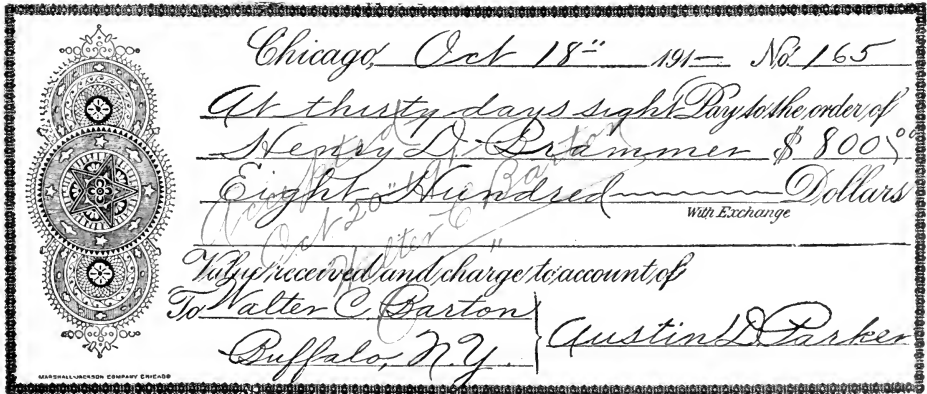 Chicago, Oct 18" 191— No. 165
At thirty days sight Pay to the order of
Henry D. Brammer $800 00
Eight Hundred Dollars
With Exchange
Accepted
Oct 20" 191—
Walter C. Barton
Value received and charge to account of
To Walter C. Barton
Buffalo, N.Y.
Austin D. Parker
MARSHALL-JACKSON COMPANY CHICAGO